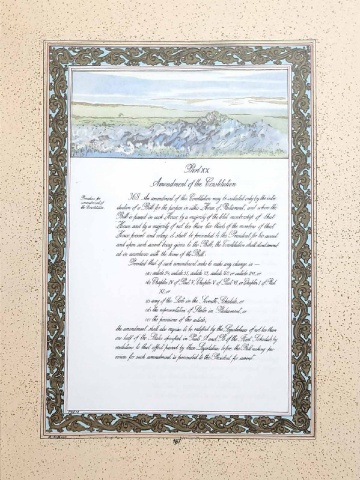 Part XX
Amendment of the Constitution
Procedure for
amendment of
the Constitution.
368. An amendment of this Constitution may be initiated only by the intro-
duction of a Bill for the purpose in either House of Parliament, and when the
Bill is passed in each House by a majority of the total membership of that
House and by a majority of not less than two thirds of the members of that
House present and voting, it shall be presented to the President for his assent
and upon such assent being given to the Bill, the Constitution shall stand amend-
ed in accordance with the terms of the Bill:
Provided that if such amendment seeks to make any change in —
(a) article 54, article 55, article 73, article 162 or article 241, or
(b) Chapter IV of Part V, Chapter V of Part VI, or Chapter I of Part
XI, or
(c) any of the Lists in the Seventh Schedule, or
(d) the representation of States in Parliament, or
(e) the provisions of this article,
the amendment shall also require to be ratified by the Legislatures of not less than
one half of the States specified in Parts A and B of the First Schedule by
resolutions to that effect passed by those Legislatures before the Bill making pro-
vision for such amendment is presented to the President for assent.